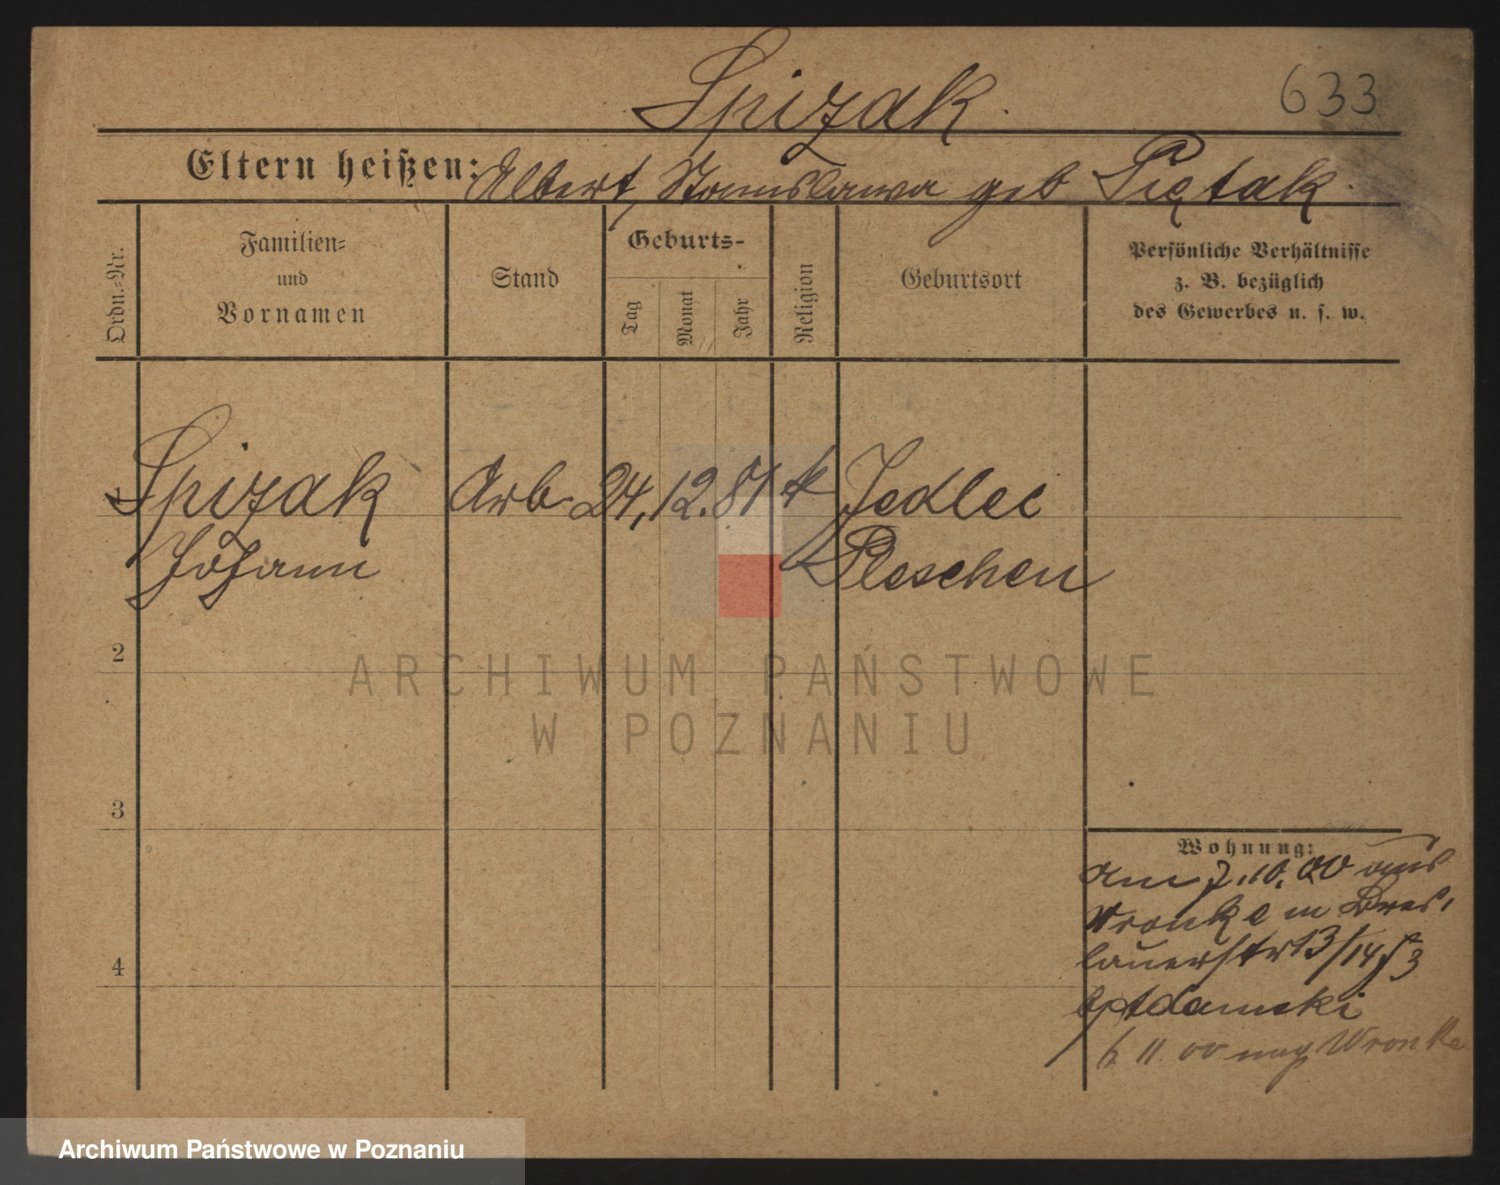 Spizak.
633
Eltern heißen: Albert, Stanislawa geb Piętak.
Ordn.-Nr.
Familien-
und
Vornamen
Stand
Geburts-
Tag
Monat
Jahr
Religion
Geburtsort
Persönliche Verhältnisse
z. B. bezüglich
des Gewerbes u. s. w.
1 Spizak Arb 24. 12. 81 k Jedlec
Johann Pleschen
2
3
4
ARCHIWUM PAŃSTWOWE
W POZNANIU
Wohnung:
am 7.10.00 aus
Wronke in Bres-
lauerstr 13/14
Adamski
11.00 nach Wronke
Archiwum Państwowe w Poznaniu